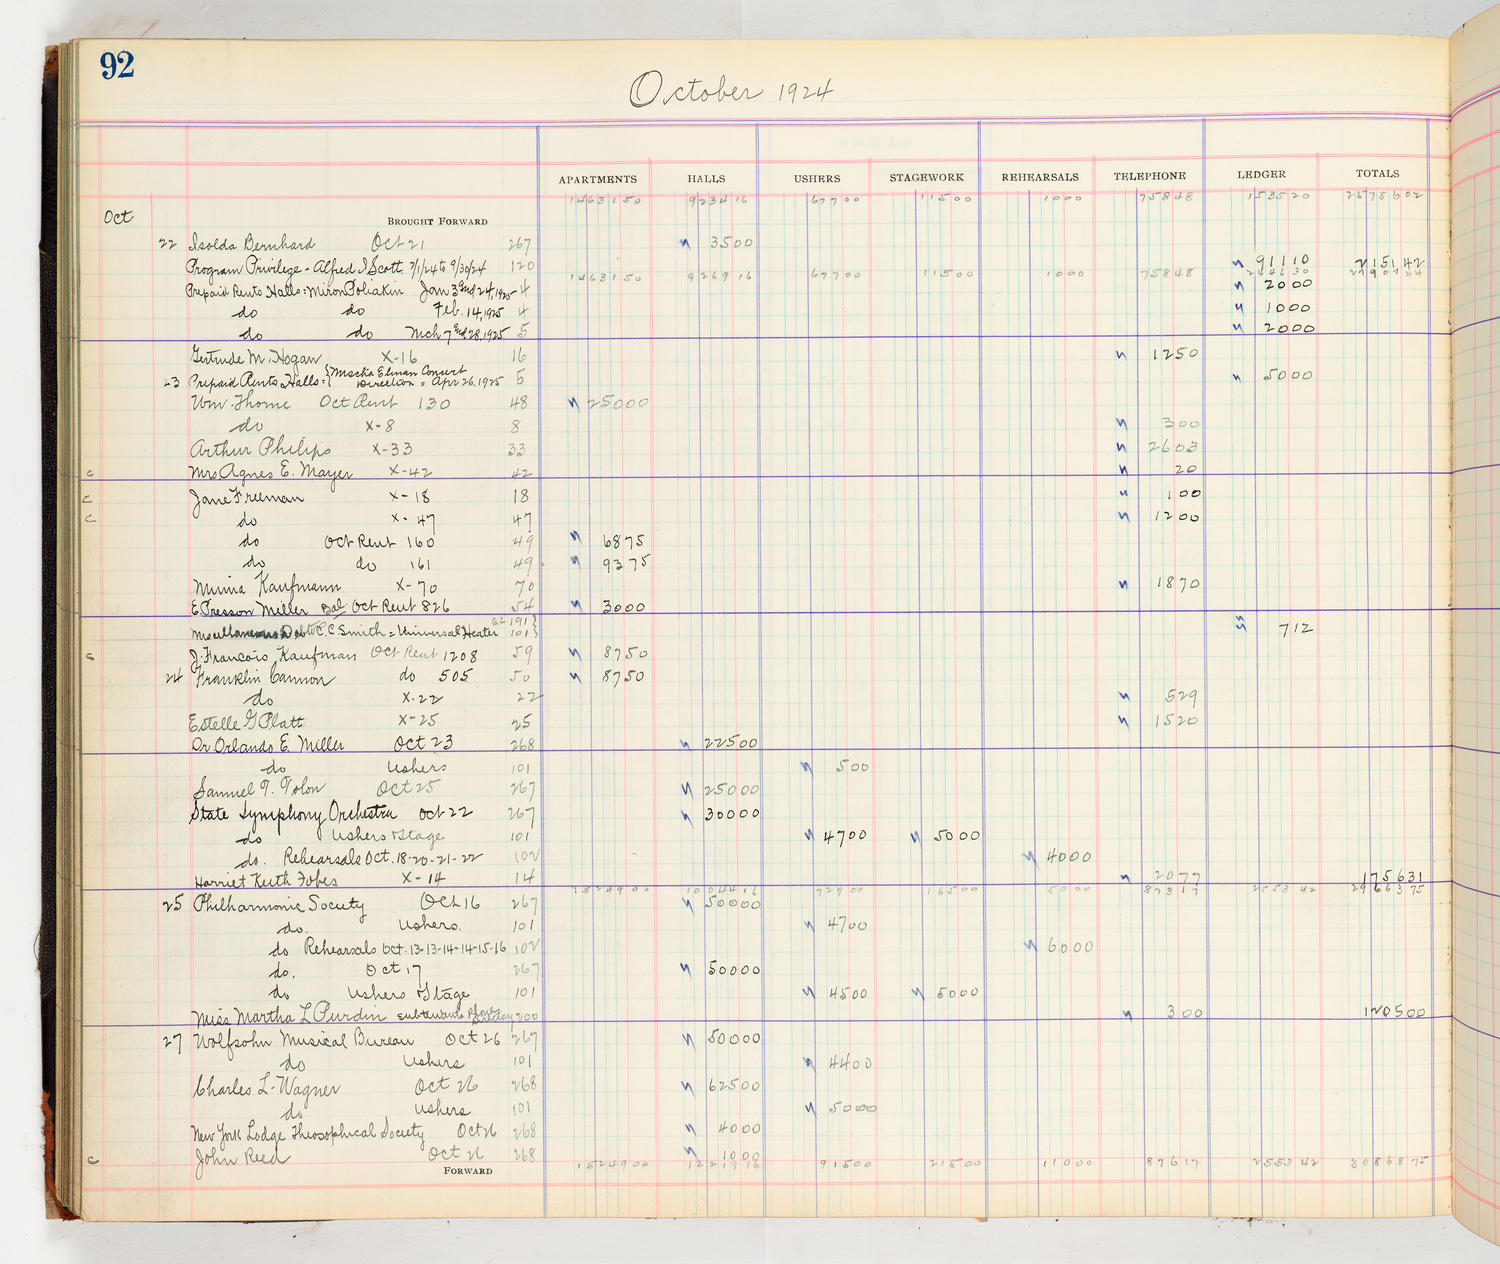 92
October 1924
APARTMENTS HALLS USHERS STAGEWORK REHEARSALS TELEPHONE LEDGER TOTALS
Oct BROUGHT FORWARD 1463150 923416 67700 11500 1000 75848 153520 2575602
22 Isolda Bernhard Oct 21 267 3500
Program Privilege - Alfred I Scott 7/1/24 to 9/30/24 120 91110 215142
1463150 926916 67700 11500 1000 75848 244630
Prepaid Rents Halls: Miron Poliakin Jan 3rd & 24, 1925 4 2000
do do Feb. 14, 1925 4 1000
do do Mch 7 & 28, 1925 5 2000
Gertrude M. Hogan X-16 16 1250
23 Prepaid Rents Halls: { Mischa Elman Concert Direction = Apr 26, 1925 5 5000
Wm. Thorne Oct Rent 130 48 25000
do X-8 8 300
Arthur Philips X-33 33 2603
c Mrs Agnes E. Mayer X-42 42 20
c Jane Freeman X-18 18 100
c do X-47 47 1200
do Oct Rent 160 49 6875
do do 161 49 9375
Minna Kaufmann X-70 70 1870
E Presson Miller Bal Oct Rent 826 54 3000
GL 191
Miscellaneous Debts C.C. Smith = Universal Heater 101 712
c J. Francois Kaufman Oct Rent 1208 59 8750
24 Franklin Cannon do 505 50 8750
do X-22 22 529
Estelle G Platt X-25 25 1520
Dr Orlando E. Miller Oct 23 268 22500
do Ushers 101 500
Samuel T. Tolon Oct 25 267 25000
State Symphony Orchestra Oct 22 267 30000
do Ushers & Stage 101 4700 5000
do. Rehearsals Oct. 18-20-21-22 102 4000
Harriet Keith Fobes X-14 14 2077 175631
1524900 1004416 72900 16500 5000 87317 255342 2966375
25 Philharmonic Society Oct 16 267 50000
do. Ushers. 101 4700
do Rehearsals Oct. 13-13-14-14-15-16 102 6000
do. Oct 17 267 50000
do Ushers & Stage 101 4500 5000
Miss Martha L Purdin subtenants Phone 200 300 120500
27 Wolfsohn Musical Bureau Oct 26 267 50000
do Ushers 101 4400
Charles L. Wagner Oct 26 268 62500
do Ushers 101 5000
New York Lodge Theosophical Society Oct 26 268 4000
c John Reed Oct 26 268 1000
FORWARD 1524900 1221916 91500 21500 11000 87617 255342